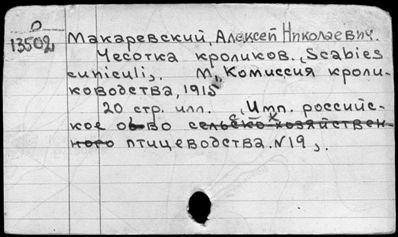 О
13502
Макаревский, Алексей Николаевич.
Чесотка кроликов. (Scabies
cuniculi). М., Комиссия кроли-
ководства, 1915.
20 стр. илл. (Имп. российс-
кое о-во сельско-хозяйствен-
ного птицеводства. N19).
с. х.